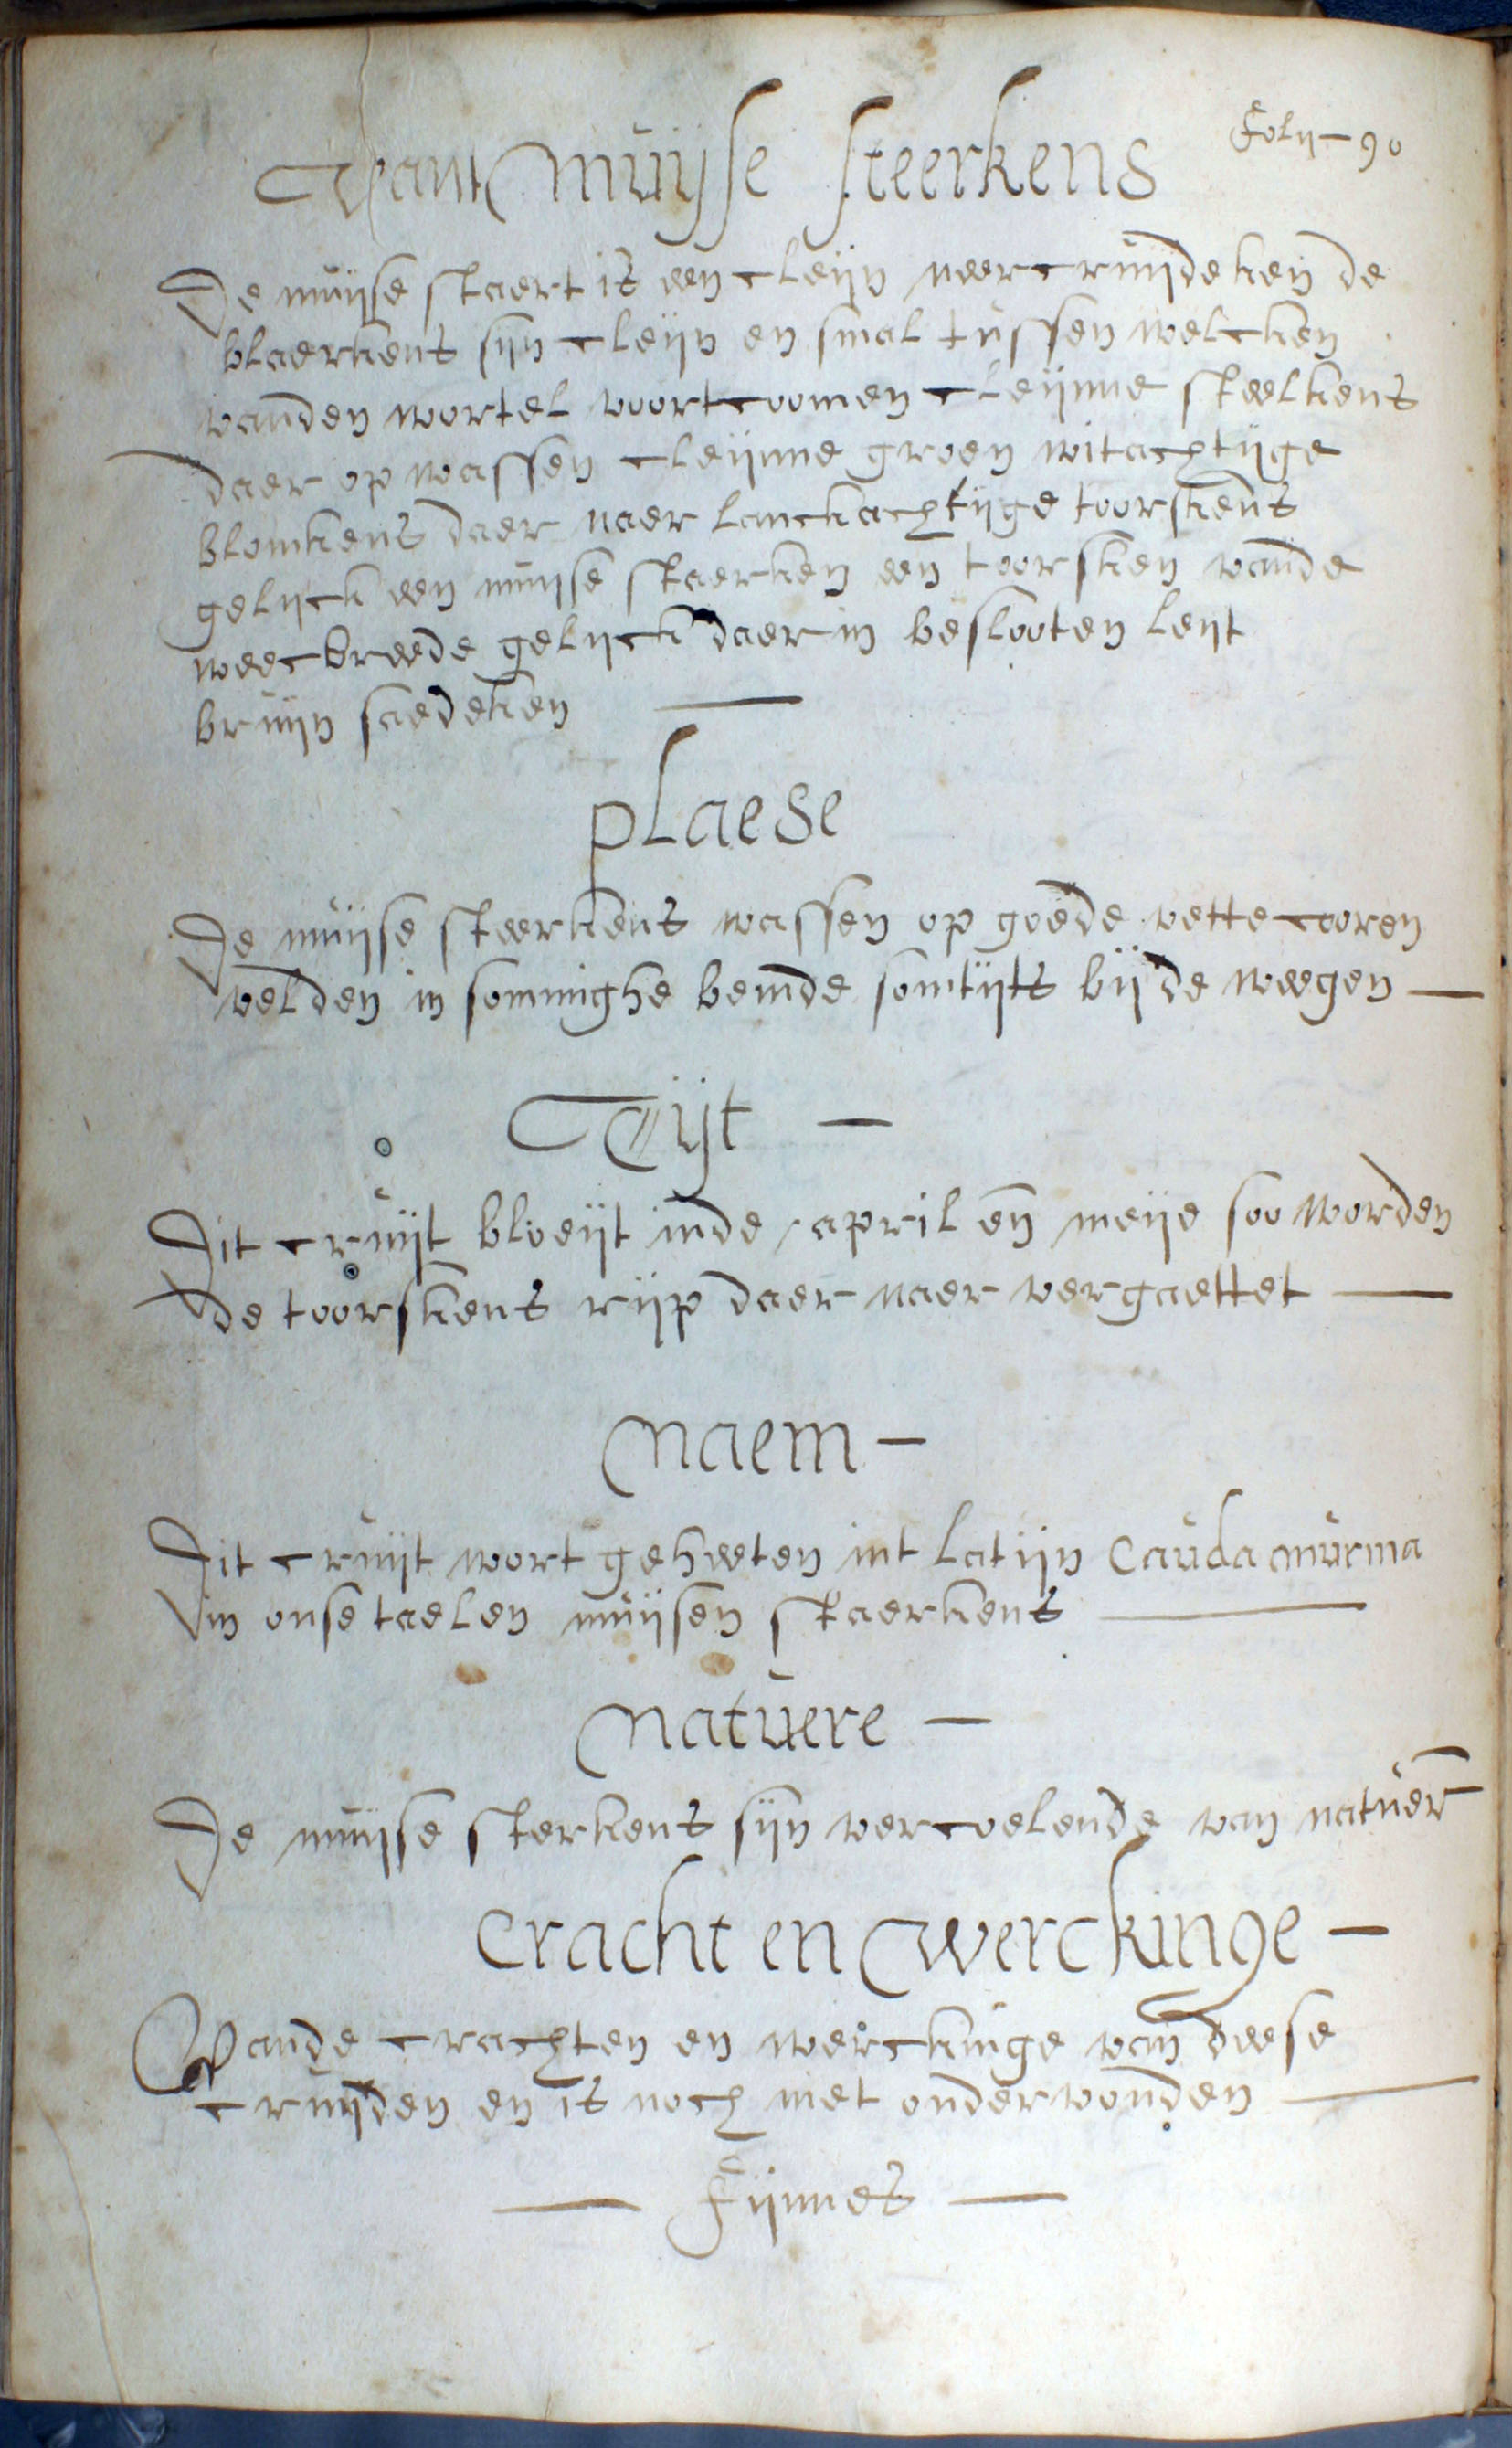 Foly - 90
Vant muijse steerkens
De muijse staert is een cleijn neer cruijdeken de
blaerkens sijn cleijn en smal tussen welcken
vanden wortel voortcoomen cleijnne steelkens
daer op wassen cleijnne groen witachtijge
blomkens daer naer lanckachtijge toorskens
gelijck een muijse staerken een toorsken vande
weecbreede gelijck daer in beslooten leijt
bruijn saedeken —
plaese
De muijse steerkens wassen op goede vette cooren
velden in sommighe bemde somtijts bij de weegen —
Tijt —
Dit cruijt bloeijt inde april en meije soo worden
de toorskens rijp daer naer vergaettet —
Naem —
Dit cruijt wort geheeten int latijn Cauda murina
in onse taelen muijsen staerkens —
Natuere —
De muijse sterkens sijn vercoelende van natuer
Cracht en werckinge —
Vande crachten en werckinge van deese
cruijden en is noch niet ondervonden —
— Fijnnes —